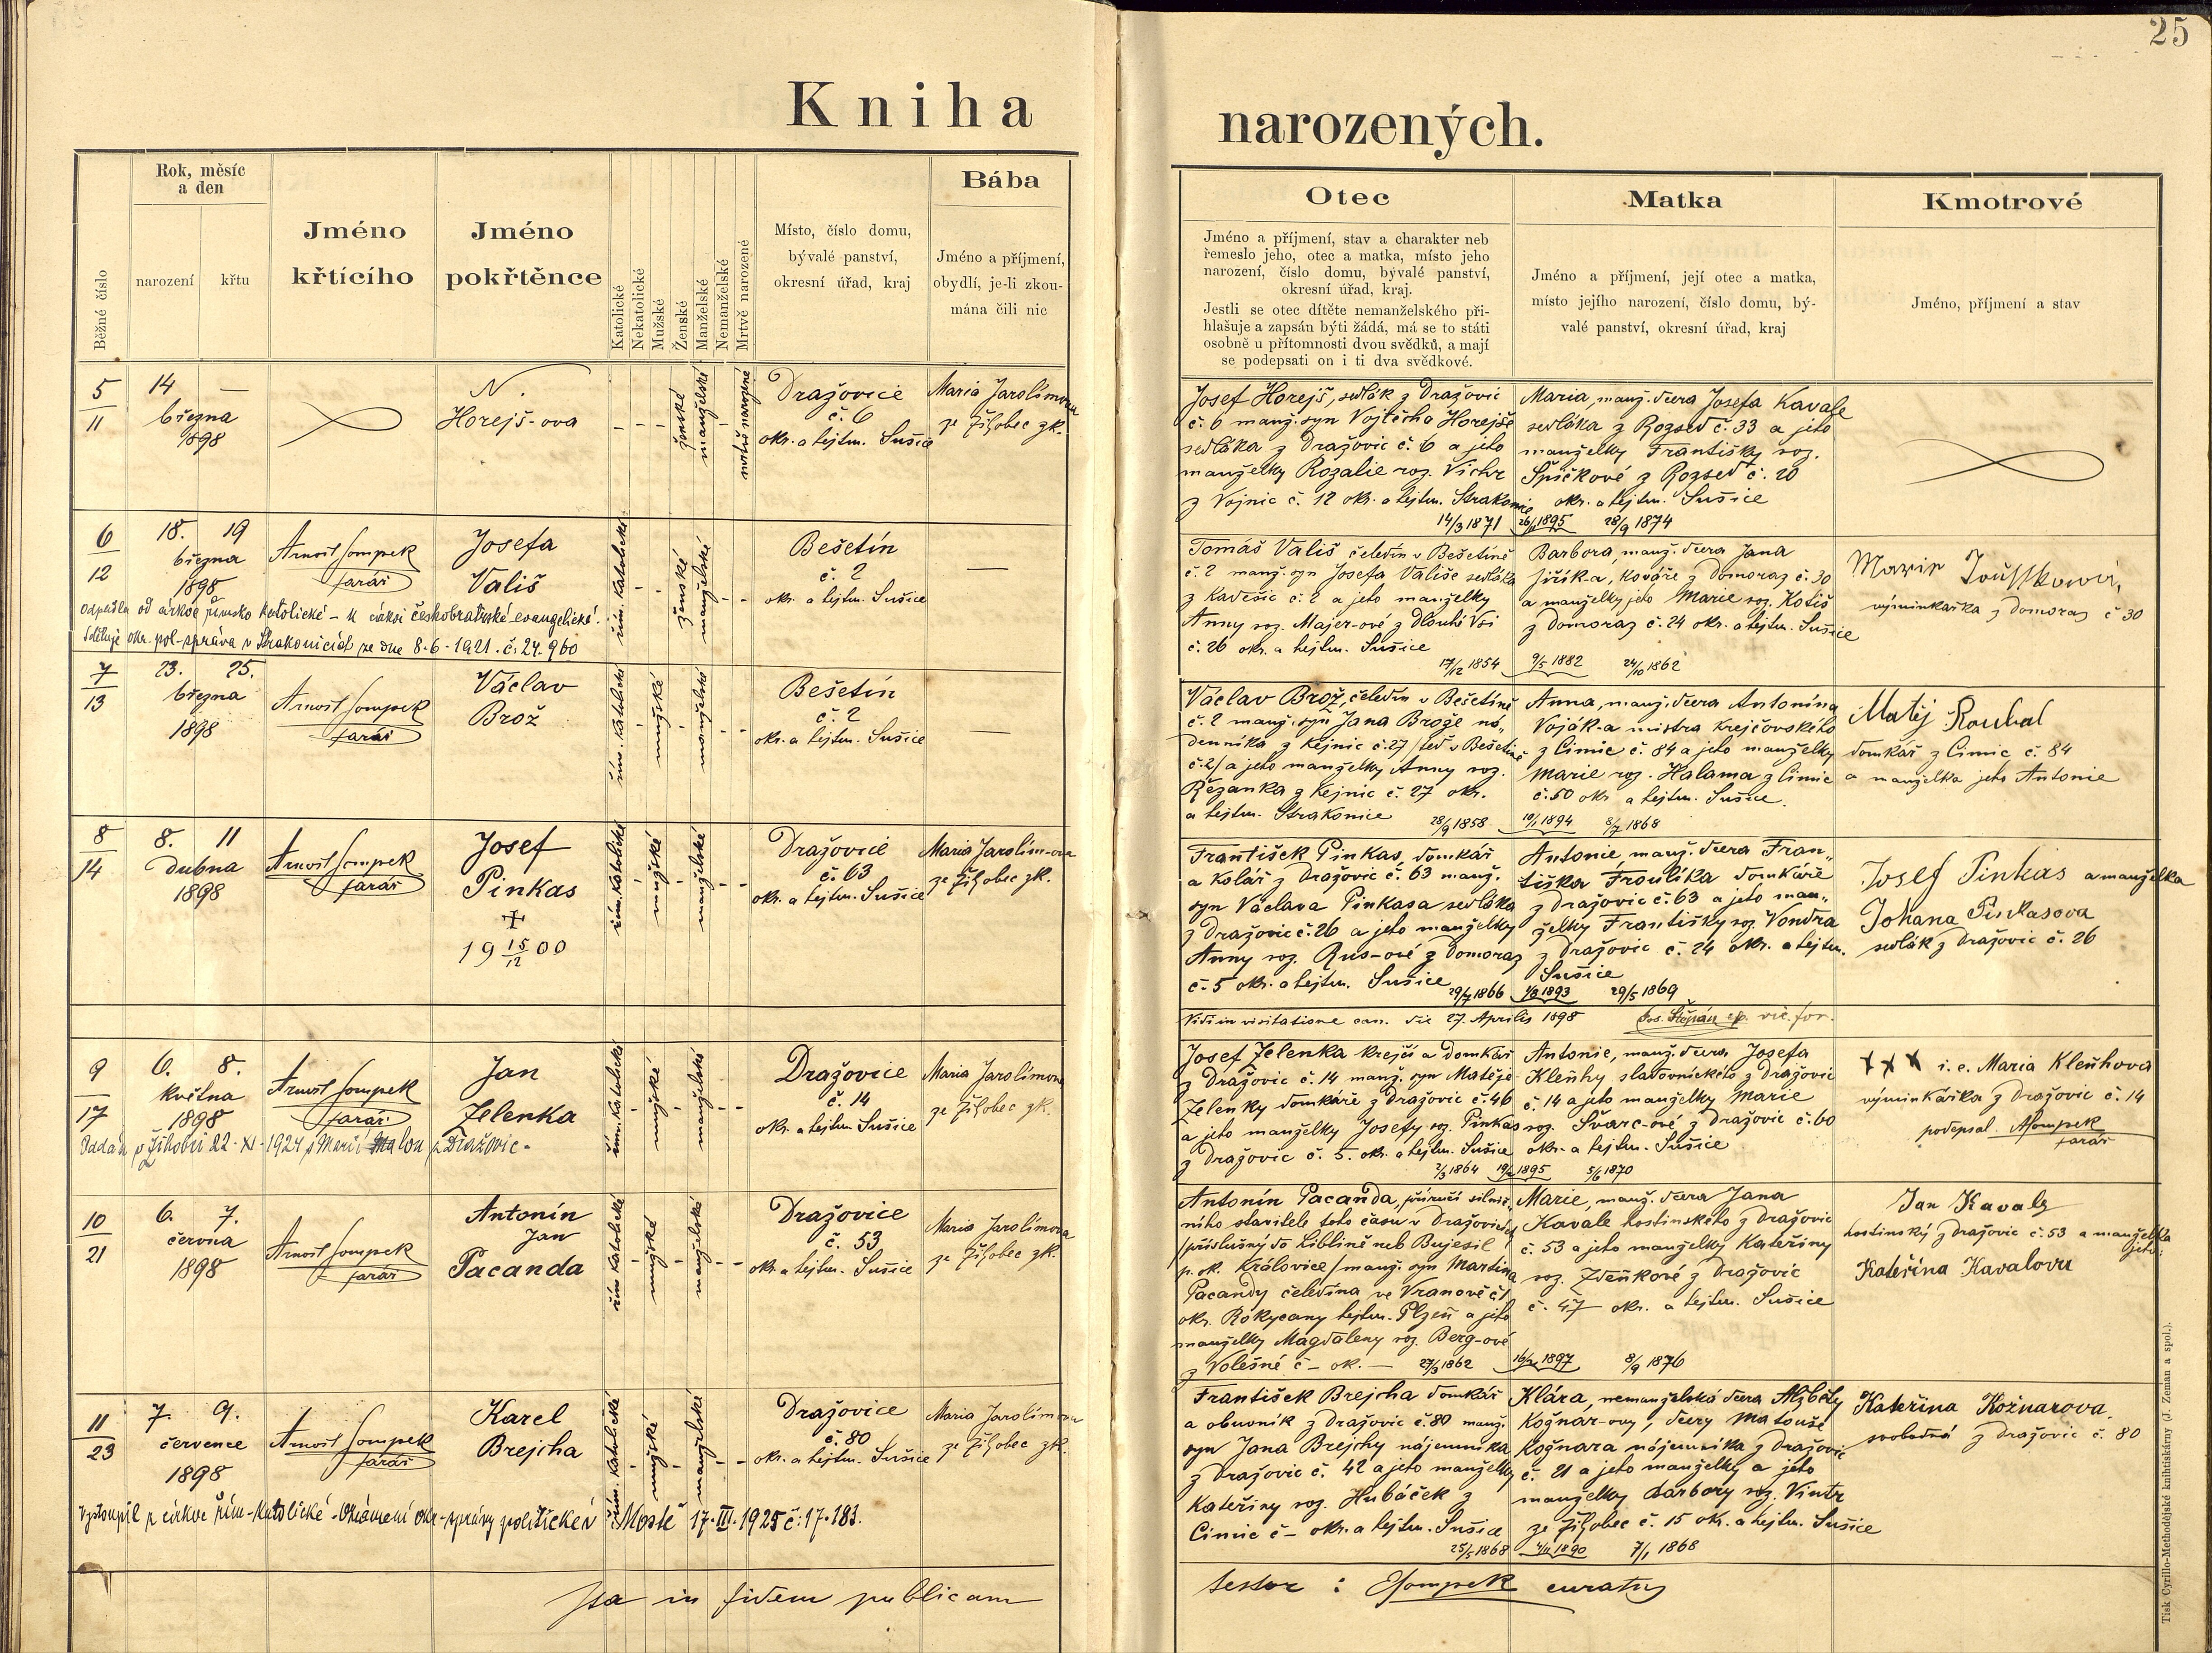 25
Kniha narozených.
Běžné číslo
Rok, měsíc
a den
narození
křtu
Jméno
křtícího
Jméno
pokřtěnce
Katolické
Nekatolické
Mužské
Ženské
Manželské
Nemanželské
Mrtvě narozené
Místo, číslo domu,
bývalé panství,
okresní úřad, kraj
Bába
Jméno a příjmení,
obydlí, je-li zkou-
mána čili nic
Otec
Jméno a příjmení, stav a charakter neb
řemeslo jeho, otec a matka, místo jeho
narození, číslo domu, bývalé panství,
okresní úřad, kraj.
Jestli se otec dítěte nemanželského při-
hlašuje a zapsán býti žádá, má se to státi
osobně u přítomnosti dvou svědků, a mají
se podepsati on i ti dva svědkové.
Matka
Jméno a příjmení, její otec a matka,
místo jejího narození, číslo domu, bý-
valé panství, okresní úřad, kraj
Kmotrové
Jméno, příjmení a stav
5
11
14 —
března
1898
N.
Horejš-ova
ženské
manželské
mrtvě narozené
Dražovice
č. 6
okr. a hejtm. Sušice
Maria Jarolímova
ze Žižobec zk.
Josef Horejš, sedlák z Dražovic
č. 6 manž. syn Vojtěcha Horejše
sedláka z Dražovic č. 6 a jeho
manželky Rozalie roz. Vichr
z Vojnic č. 12 okr. a hejtm. Strakonic
14/3 1871
Maria, manž. dcera Josefa Kavale
sedláka z Rozsed č. 33 a jeho
manželky Františky roz.
Špičkové z Rozsed č. 20
okr. a hejtm. Sušice
26/11 1895 28/9 1874
6
12
18. 19
března
1898
Arnošt Sompek
farář
Josefa
Vališ
řím. katolické
ženské
manželské
Bešetín
č. 2
okr. a hejtm. Sušice
—
Odpadla od církve římsko katolické – k církvi českobratrské evangelické.
Sděluje okr. pol. správa v Strakonicích ze dne 8-6-1921. č. 24.960
Tomáš Vališ čeledín v Bešetíně
č. 2 manž. syn Josefa Vališe sedláka
z Kadešic č. 2 a jeho manželky
Anny roz. Majer-ové z Dlouhé Vsi
č. 26 okr. a hejtm. Sušice
17/12 1854
Barbora, manž. dcera Jana
Jiřík-a, kováře z Domoraz č. 30
a manželky jeho Marie roz. Kotiš
z Domoraz č. 24 okr. a hejtm. Sušice
9/5 1882 24/10 1862
Marie
výminkářka z Domoraz č 30
7
13
23. 25.
března
1898
Arnošt Sompek
farář
Václav
Brož
řím. katolické
mužské
manželské
Bešetín
č. 2
okr. a hejtm. Sušice
—
Václav Brož, čeledín v Bešetíně
č. 2 manž. syn Jana Brože ná-
denníka z Kejnic č. 27 /teď v Bešetíně
č. 2/ a jeho manželky Anny roz.
Řezanka z Kejnic č. 27 okr.
a hejtm. Strakonice 28/9 1858
Anna, manž. dcera Antonína
Voják-a mistra krejčovského
z Čimic č. 84 a jeho manželky
Marie roz. Halama z Čimic
č. 50 okr. a hejtm. Sušice.
10/1 1894 8/7 1868
Matěj Roubal
domkář z Čimic č. 84
a manželka jeho Antonie
8
14
8. 11
dubna
1898
Arnošt Sompek
farář
Josef
Pinkas
+
19 15/12 00
řím. katolické
mužské
manželské
Dražovice
č. 63
okr. a hejtm. Sušice
Maria Jarolím-ova
ze Žižobec zk.
František Pinkas, domkář
a kolář z Dražovic č. 63 manž.
syn Václava Pinkasa sedláka
z Dražovic č. 26 a jeho manželky
Anny roz. Rus-ové z Domoraz
č. 5 okr. a hejtm. Sušice
29/7 1866
Antonie, manž. dcera Fran-
tiška Froulíka domkáře
z Dražovic č. 63 a jeho man-
želky Františky roz. Vondra
z Dražovic č. 24 okr. a hejtm.
Sušice
1893 29/5 1869
Josef Pinkas a manželka
Johana Pinkasova
sedlák z Dražovic č. 26
Vidi in visitatione can. die 27. Aprilis 1898 Jos. Štěpán vic. for.
9
17
6. 8.
května
1898
Arnošt Sompek
farář
Jan
Zelenka
řím. katolické
mužské
manželské
Dražovice
č. 14
okr. a hejtm. Sušice
Maria Jarolímova
ze Žižobec zk.
Oddán v Žihobci 22-XI-1924 s Marií Malou z Dražovic.
Josef Zelenka krejčí a domkář
z Dražovic č. 14 manž. syn Matěje
Zelenky domkáře z Dražovic č. 46
a jeho manželky Josefy roz. Pinkas
z Dražovic č. 5. okr. a hejtm. Sušice
2/3 1864
Antonie, manž. dcera Josefa
Kleňhy sladovnického z Dražovic
č. 14 a jeho manželky Marie
roz. Švarc-ové z Dražovic č. 60
okr. a hejtm. Sušice
1895 5/6 1870
x x x i. e. Maria Kleňhova
výminkářka z Dražovic č. 14
podepsal ASompek
farář
10
21
6. 7.
června
1898
Arnošt Sompek
farář
Antonín
Jan
Pacanda
řím. katolické
mužské
manželské
Dražovice
č. 53
okr. a hejtm. Sušice
Maria Jarolímova
ze Žižobec zk.
Antonín Pacanda, příručí silnič-
ního stavitele toho času v Dražovicích
/příslušný do Liblíně neb Bujesil
p. ok. Královice/ manž. syn Martina
Pacandy čeledína ve Vranově č 1
okr. Rokycany hejtm. Plzeň a jeho
manželky Magdaleny roz. Berg-ové
z Volešné č – ok. — 27/3 1862
Marie, manž. dcera Jana
Kavale hostinského z Dražovic
č. 53 a jeho manželky Kateřiny
roz. Zdeňkové z Dražovic
č. 47 okr. a hejtm. Sušice
1897 8/9 1876
Jan Kavale
hostinský z Dražovic č. 53 a manželka
jeho:
Kateřina Kavalova
11
23
7. 9.
července
1898
Arnošt Sompek
farář
Karel
Brejcha
řím. katolické
mužské
manželské
Dražovice
č. 80
okr. a hejtm. Sušice
Maria Jarolímova
ze Žižobec zk.
Vystoupil z církve řím-katolické - Oznámení okr-správy politické v Mostě 17.III.1925 č. 17.183.
František Brejcha domkář
a obuvník z Dražovic č. 80 manž.
syn Jana Brejchy nájemníka
z Dražovic č. 42 a jeho manželky
Kateřiny roz. Hubáček z
Čimic č – okr. a hejtm. Sušice
25/5 1868
Klára, nemanželská dcera Alžběty
Kožnar-ovy, dcery Matouše
Kožnara nájemníka z Dražovic
č. 21 a jeho manželky a jeho
manželky Barbory roz. Vintr
ze Žižobec č. 15 okr. a hejtm. Sušice
4/11 1890 7/1 1868
Kateřina Kožnarova,
svobodná z Dražovic č. 80
Ita in fidem publicam
testor : ESompek curatus
Tisk Cyrillo-Methodějské knihtiskárny (J. Zeman a spol.).